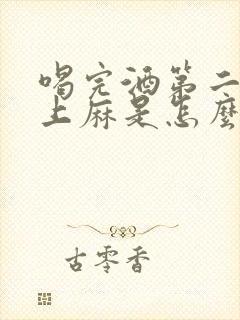 喝完酒第二
上麻是怎麼
古零香